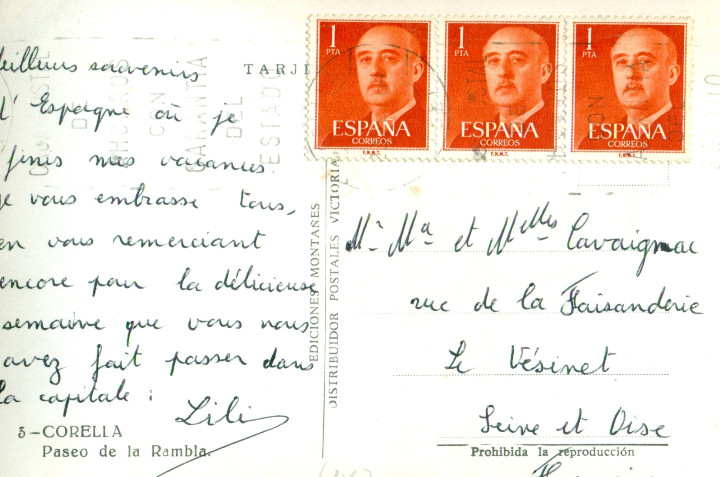 Meilleurs souvenirs
d'Espagne où je
finis mes vacances.
Je vous embrasse tous,
en vous remerciant
encore pour la délicieuse
semaine que vous nous
avez fait passer dans
la capitale :
Lili
3-CORELLA
Paseo de la Rambla.
TARJ
EDICIONES MONTAÑES
DISTRIBUIDOR POSTALES VICTORIA
1 PTA
ESPAÑA
CORREOS
F.N.M.T.
1 PTA
ESPAÑA
CORREOS
F.N.M.T.
1 PTA
ESPAÑA
CORREOS
F.N.M.T.
Mr Ma et Melles Cavaignac
rue de la Faisanderie
Le Vésinet
Seine et Oise
Prohibida la reproducción